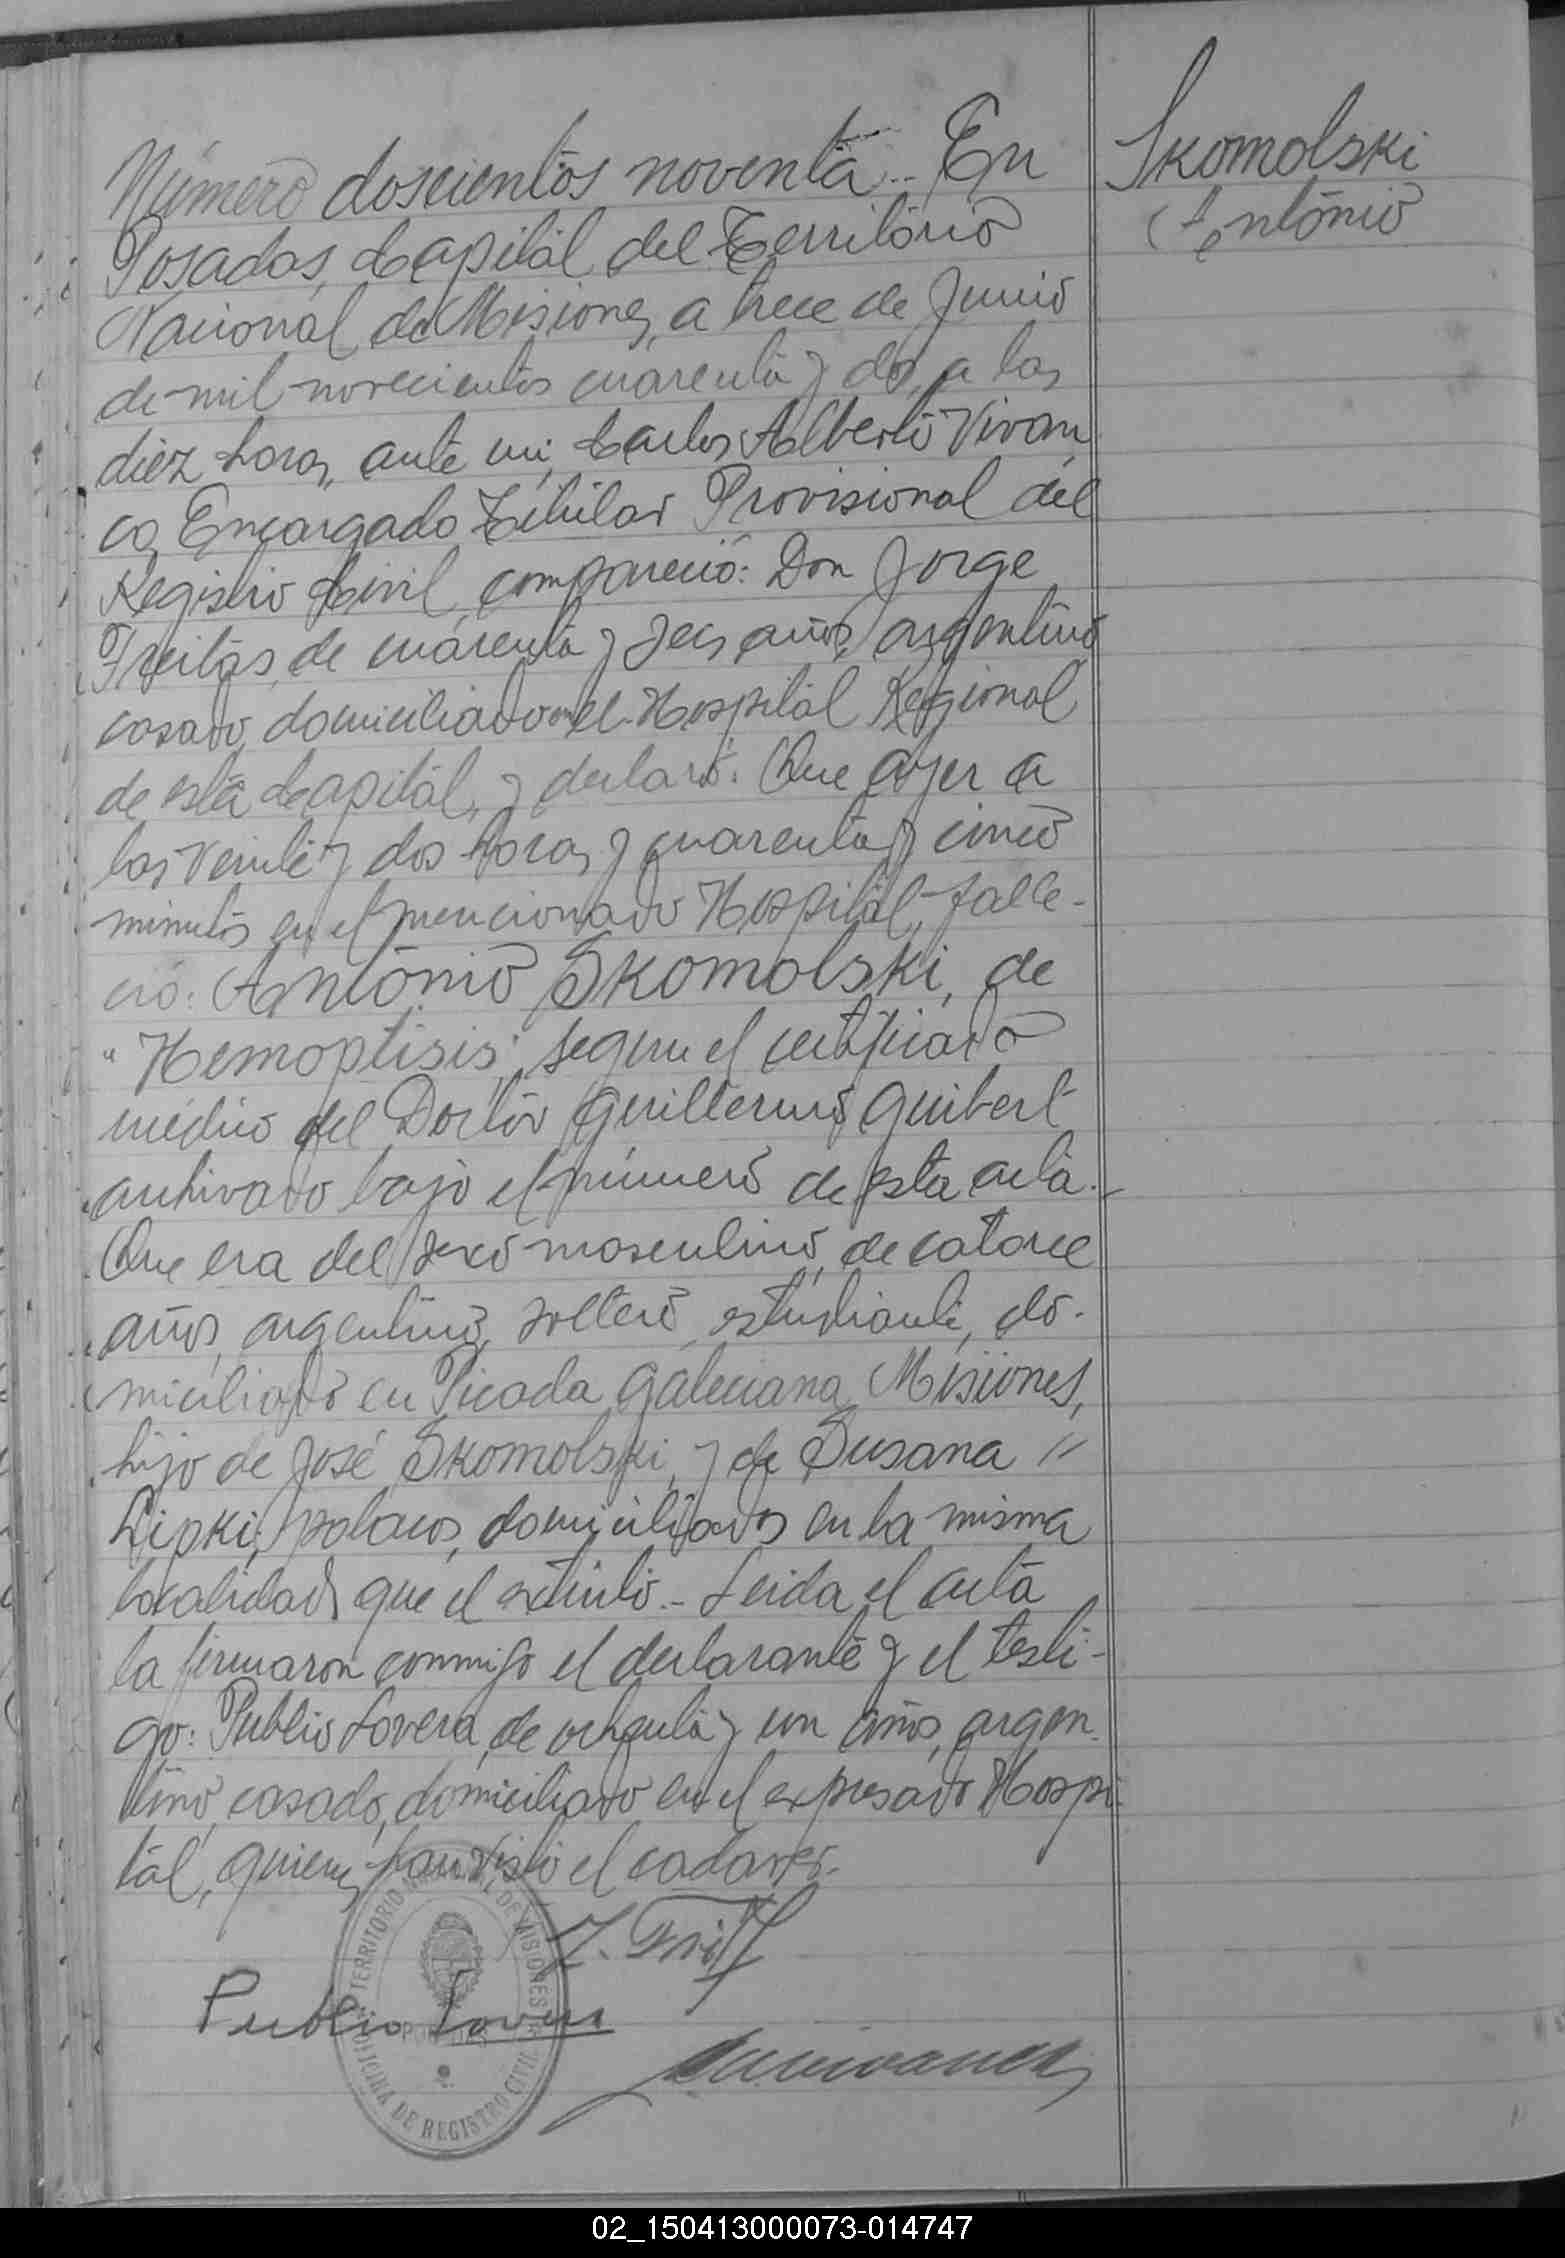 Skomolski
Antonio
Número doscientos noventa.. En
Posadas, Capital del Territorio
Nacional de Misiones, a trece de Junio
de mil novecientos cuarenta y dos, a las
diez horas, ante mi, Carlos Alberto Vivan
co, Encargado Titular Provisional del
Registro Civil, compareció: Don Jorge
Freitas, de cuarenta y seis años, argentino
casado, domiciliado en el Hospital Regional
de esta Capital, y declaró: Que ayer a
las veinte y dos horas y cuarenta y cinco
minutos en el mencionado Hospital, falle-
ció: Antonio Skomolski, de
"Hemoptisis", segun el certificado
médico del Doctor Guillermo Guibert
archivado bajo el número de esta acta.-
Que era del sexo masculino, de catorce
años, argentino, soltero, estudiante, do-
miciliado en Picada Galeciana, Misiones,
hijo de José Skomolski, y de Susana "
Lipki, polacos, domiciliados en la misma
localidad que el extinto.- Leida el acta
la firmaron conmigo el declarante y el testi-
go: Publio Lovera, de ochenta y un años, argen-
tino, casado, domiciliado en el expresado Hospi-
tal, quienes han visto el cadaver.-
TERRITORIO NACIONAL DE MISIONES
J.
Publio Lovera
POSADAS
OFICINA DE REGISTRO CIVIL
02_150413000073-014747